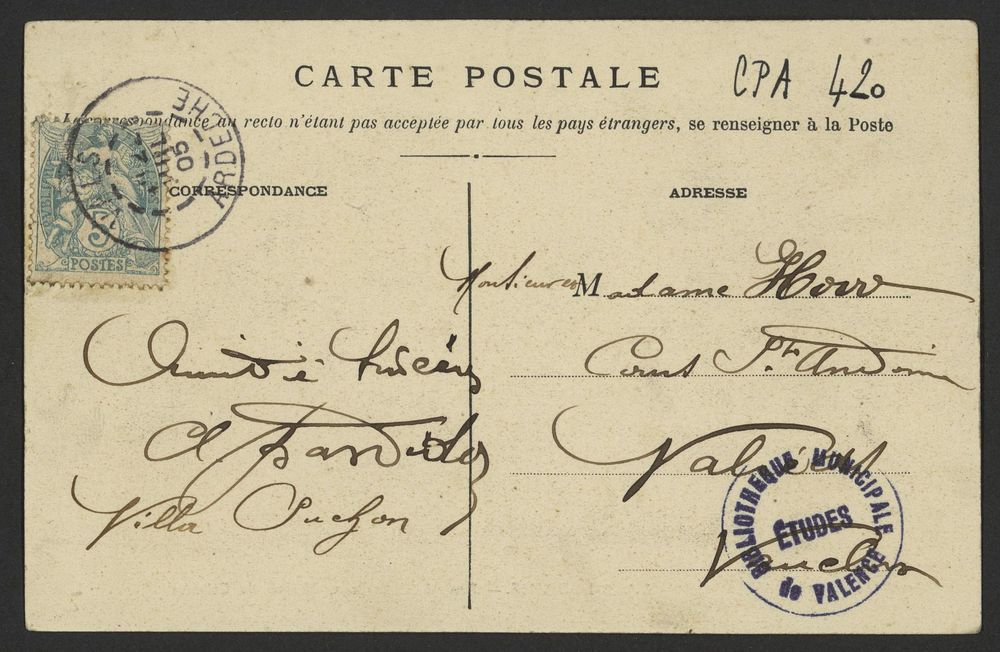 CARTE POSTALE
CPA 420
La correspondance au recto n'étant pas acceptée par tous les pays étrangers, se renseigner à la Poste
CORRESPONDANCE
ADRESSE
ARDECHE
05
5
POSTES
Amitié sincères
Villa Suchon
Madame
Cours St
Valréas
Vaucluse
BIBLIOTHEQUE MUNICIPALE
ÉTUDES
de VALENCE